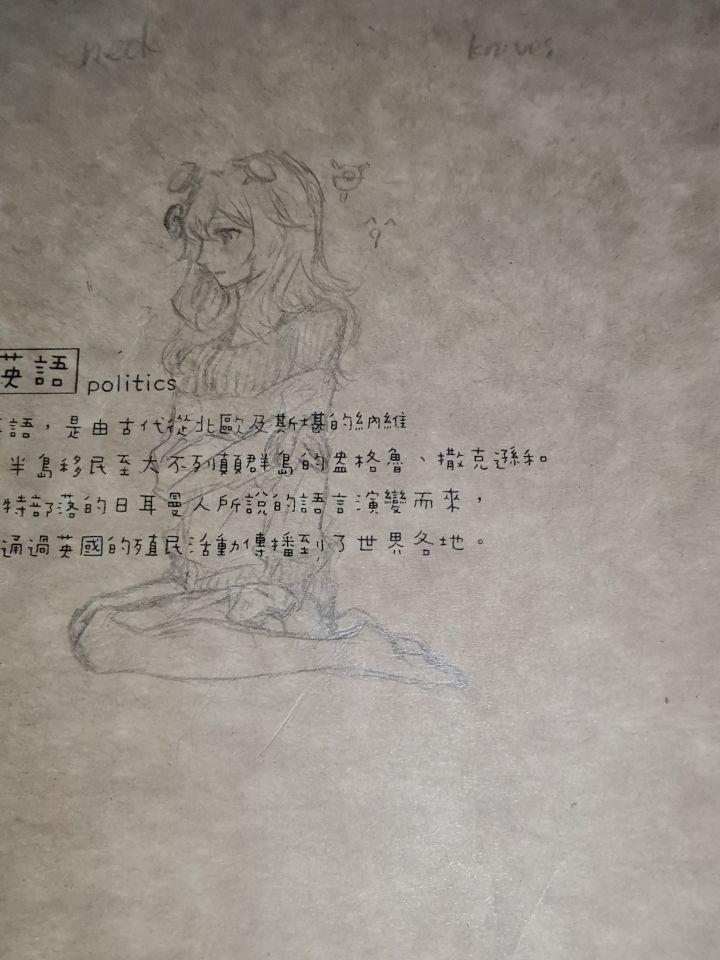 neck knives
^9^
英語 politics
語，是由古代從北歐及斯堪的納維
半島移民至大不列顛群島的盎格魯、撒克遜和
特部落的日耳曼人所說的語言演變而來，
通過英國的殖民活動傳播到了世界各地。